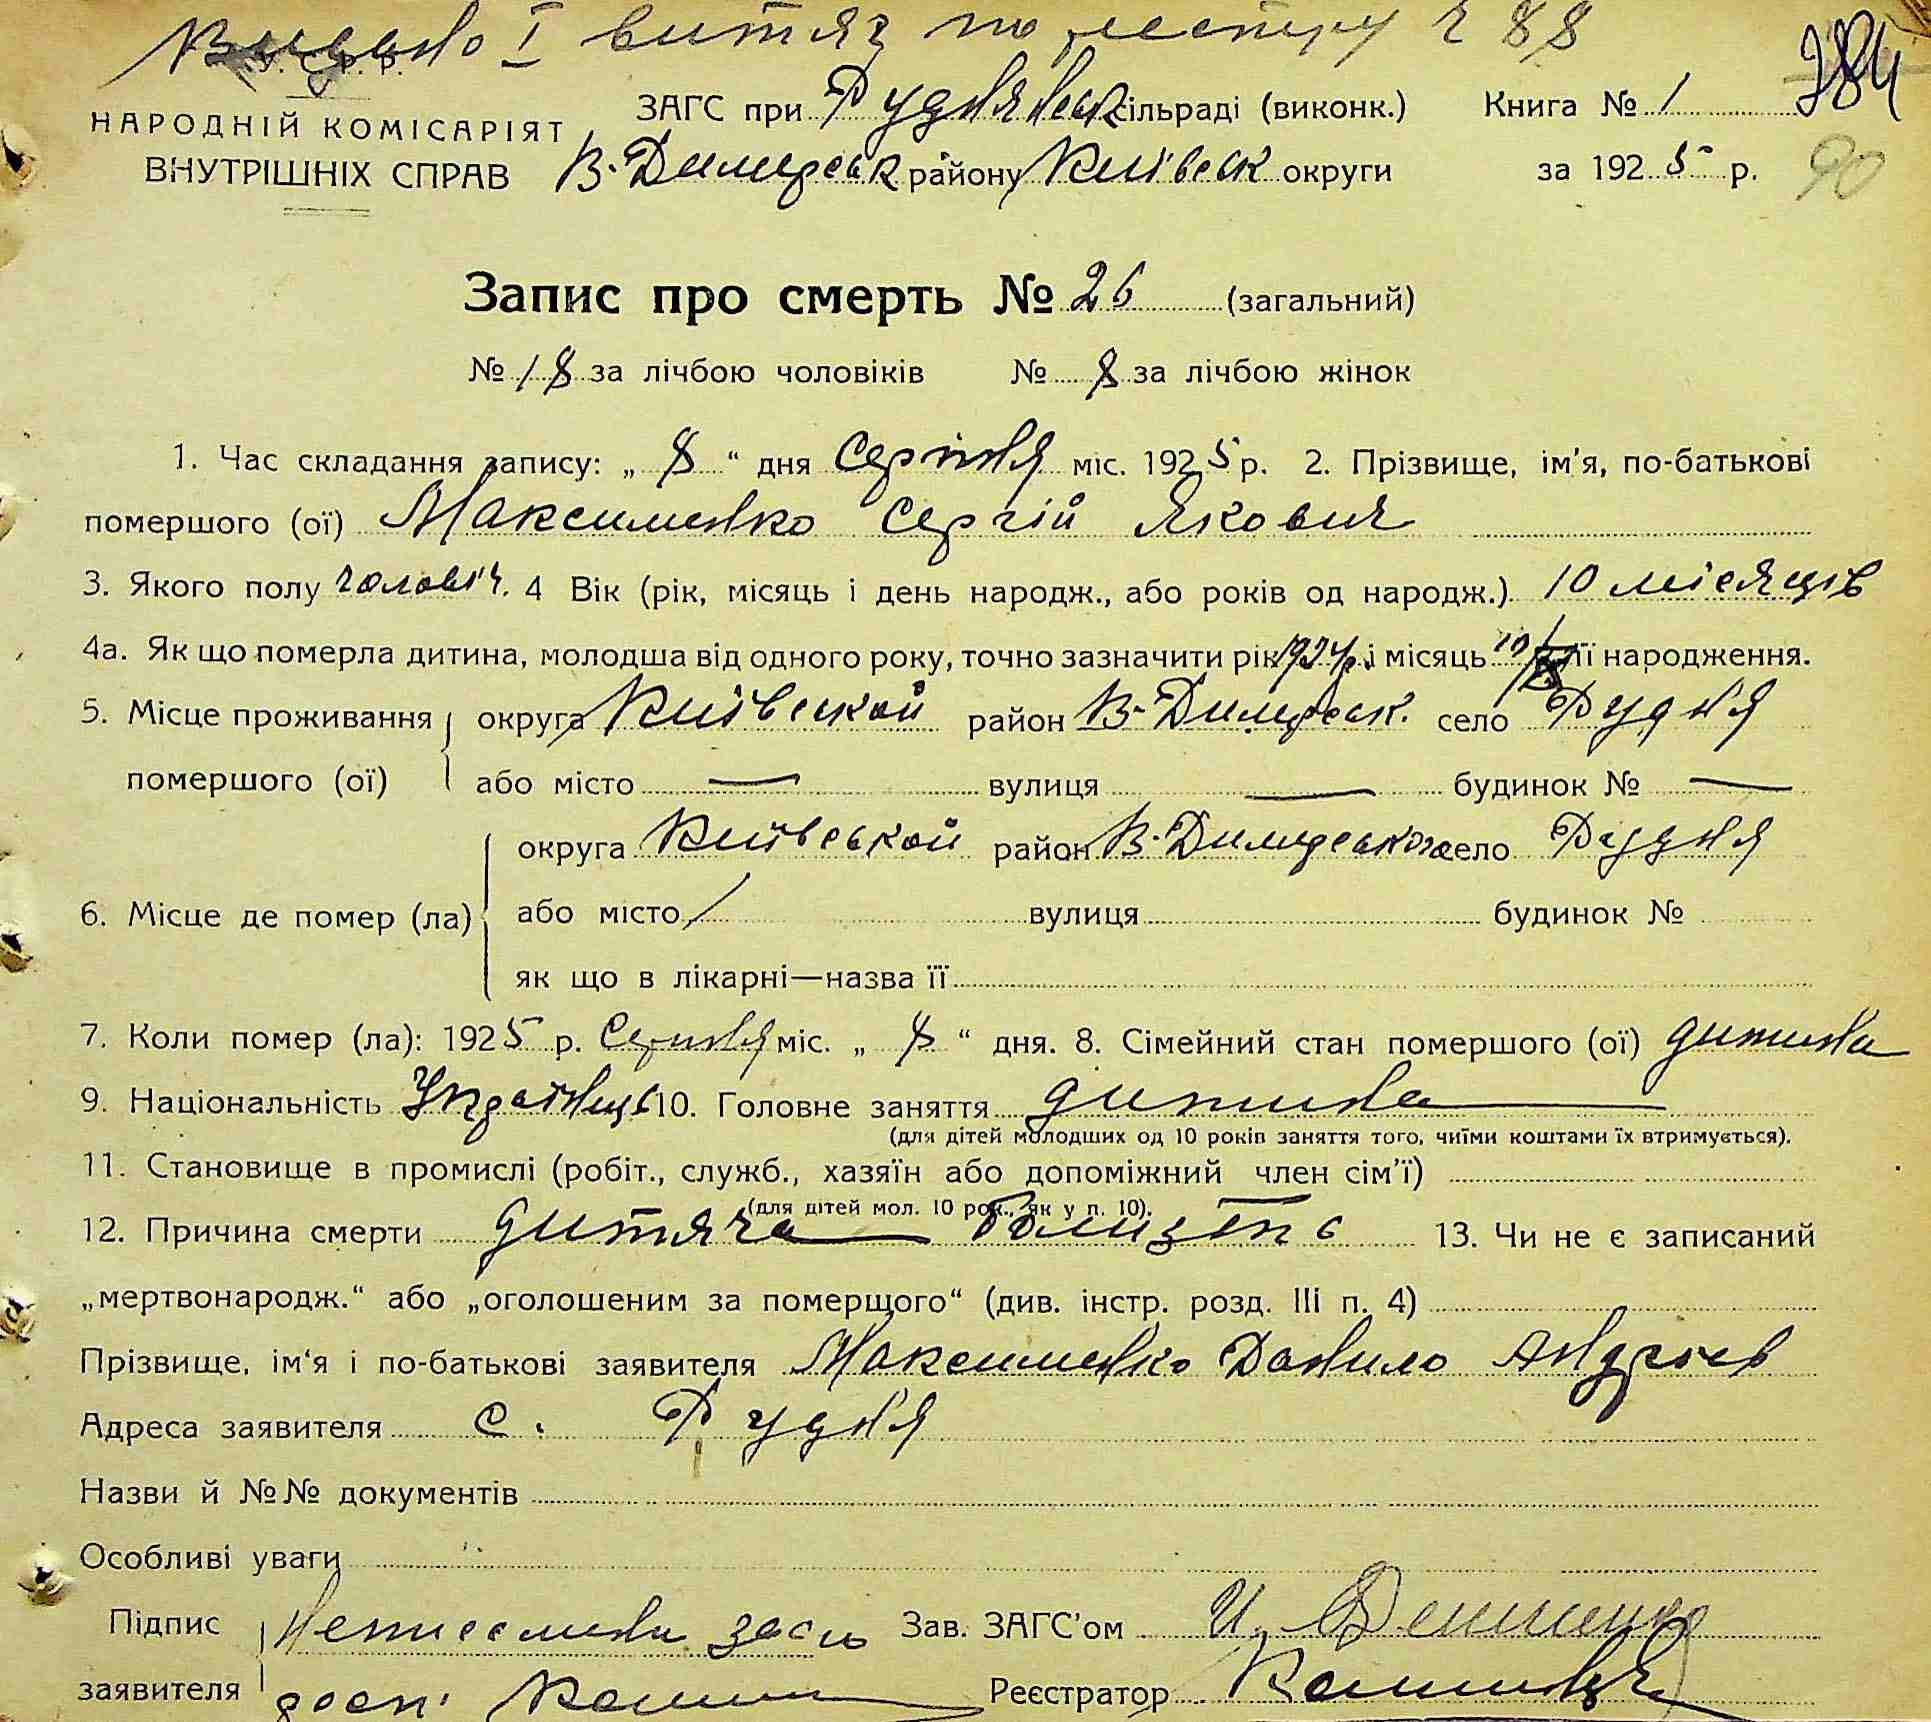 Видано I витяг по реєстру Ч 88
У. С. Р. Р. 284
ЗАГС при Руднянськ сільраді (виконк.) Книга № 1
НАРОДНІЙ КОМІСАРІЯТ
ВНУТРІШНІХ СПРАВ В-Димерськ району Київськ округи за 1925 р. 90
Запис про смерть № 26 (загальний)
№ 18 за лічбою чоловіків № 8 за лічбою жінок
1. Час складання запису: „ 8 “ дня Серпня міс. 1925 р. 2. Прізвище, ім'я, по-батькові
помершого (ої) Максименко Сергій Якович
3. Якого полу чоловіч. 4 Вік (рік, місяць і день народж., або років од народж.) 10 місяців
4а. Як що померла дитина, молодша від одного року, точно зазначити рік 1924 р. і місяць її народження.
5. Місце проживання округа Київської район В-Димерськ. село Рудня
помершого (ої) або місто — вулиця — будинок № —
округа Київської район В-Димерського село Рудня
6. Місце де помер (ла) або місто / вулиця будинок №
як що в лікарні—назва її
7. Коли помер (ла): 1925 р. Серпня міс. „ 8 “ дня. 8. Сімейний стан помершого (ої) дитина
9. Національність Українець 10. Головне заняття дитина
(для дітей молодших од 10 років заняття того, чиїми коштами їх втримується).
11. Становище в промислі (робіт., служб., хазяїн або допоміжний член сім'ї)
(для дітей мол. 10 рок., як у п. 10).
12. Причина смерти дитяча 13. Чи не є записаний
„мертвонародж.“ або „оголошеним за померщого“ (див. інстр. розд. III п. 4)
Прізвище, ім'я і по-батькові заявителя Максименко Данило Андріев
Адреса заявителя с. Рудня
Назви й №№ документів
Особливі уваги
Підпис Неписьменн Зав. ЗАГС'ом
заявителя Реєстратор